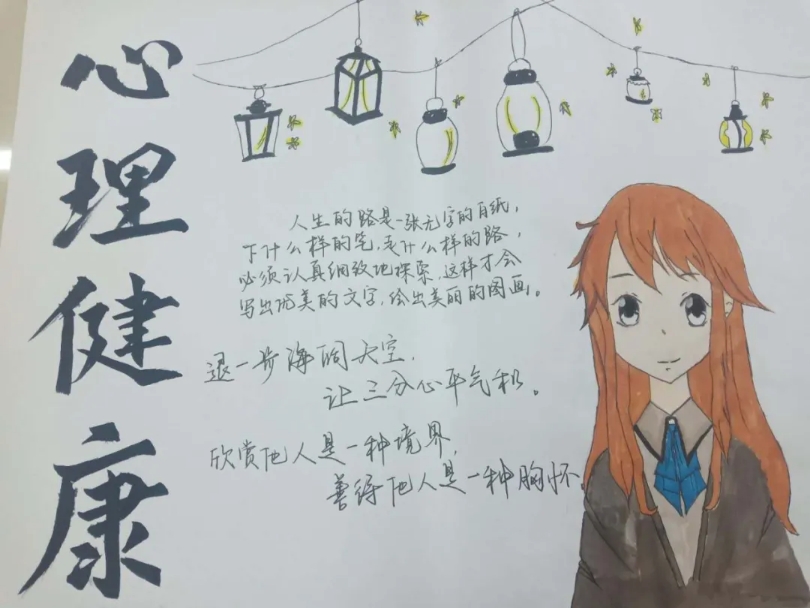 心理健康
人生的路是一张无字的白纸，
下什么样的笔，走什么样的路，
必须认真细致地探索，这样才会
写出优美的文字，绘出美丽的图画。
退一步海阔天空，
让三分心平气和。
欣赏他人是一种境界，
善待他人是一种胸怀。